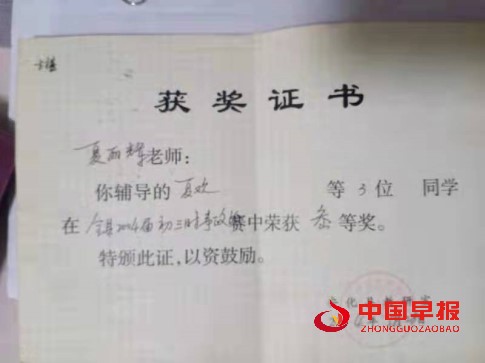 获奖证书
夏丽辉老师:
你辅导的 夏欢 等 3 位 同学
在 全县2004届初三时事政 赛中荣获 叁 等奖。
特颁此证,以资鼓励。
中国早报
ZHONGGUOZAOBAO